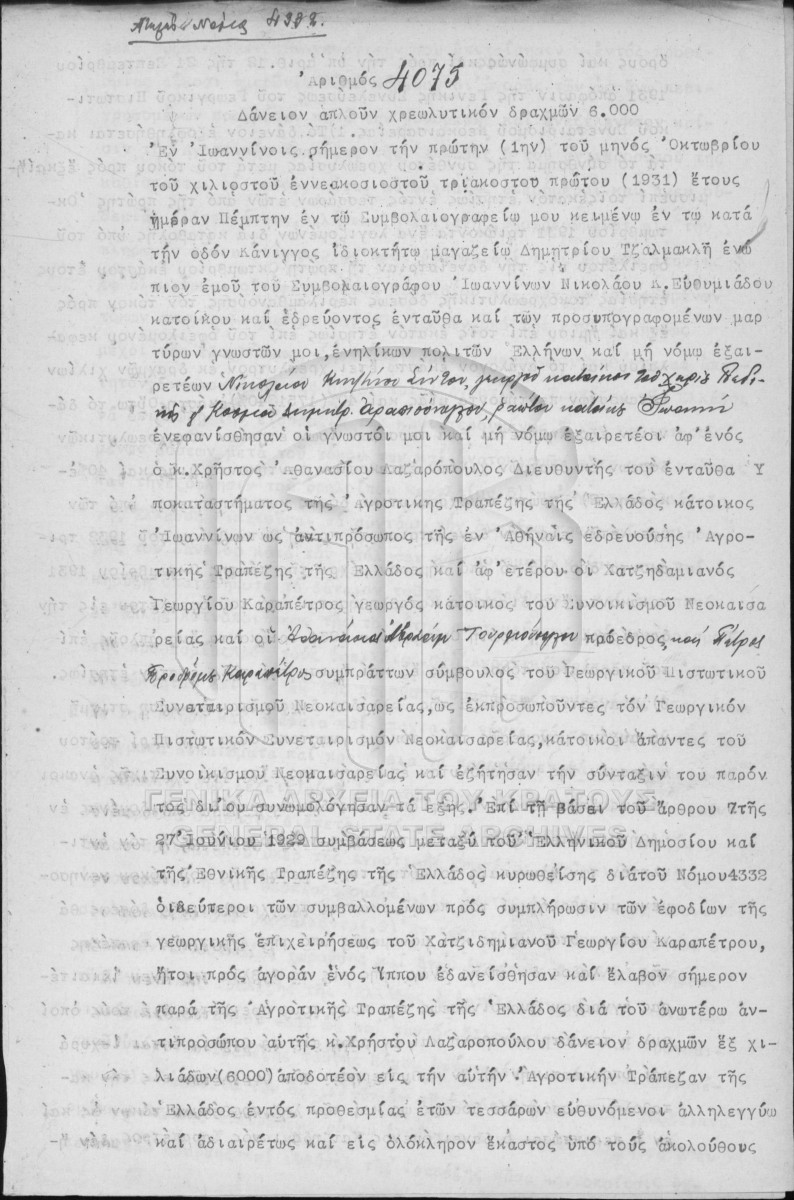 4332.
Ἀριθμός 4075
Δάνειον ἁπλοῦν χρεωλυτικόν δραχμῶν 6.000
Ἐν Ἰωαννίνοις σήμερον τήν πρώτην (1ην) τοῦ μηνός Ὀκτωβρίου
τοῦ χιλιοστοῦ ἐννεακοσιοστοῦ τριακοστοῦ πρώτου (1931) ἔτους
ἡμέραν Πέμπτην ἐν τῷ Συμβολαιογραφείῳ μου κειμένῳ ἐν τῷ κατά
τήν ὁδόν Κάνιγγος ἰδιοκτήτῳ μαγαζείῳ Δημητρίου Τζαλμακλῆ ἐνώ
πιον ἐμοῦ τοῦ Συμβολαιογράφου Ἰωαννίνων Νικολάου Κ.Εὐθυμιάδου
κατοίκου καί ἑδρεύοντος ἐνταῦθα καί τῶν προσυπογραφομένων μαρ
τύρων γνωστῶν μοι,ἐνηλίκων πολιτῶν Ἑλλήνων καί μή νόμῳ ἐξαι-
ρετέων Νικολάου
Κοσμᾶ Δημητρ.
ἐνεφανίσθησαν οἱ γνωστοί μοι καί μή νόμῳ ἐξαιρετέοι ἀφ'ἑνός
ὁ κ.Χρῆστος Ἀθανασίου Λαζαρόπουλος Διευθυντής τοῦ ἐνταῦθα Υ
ποκαταστήματος τῆς Ἀγροτικῆς Τραπέζης τῆς Ἑλλάδος κάτοικος
Ἰωαννίνων ὡς ἀντιπρόσωπος τῆς ἐν Ἀθήναις ἑδρευούσης Ἀγρο-
τικῆς Τραπέζης τῆς Ἑλλάδος καί ἀφ'ἑτέρου οἱ Χατζηδαμιανός
Γεωργίου Καραπέτρος γεωργός κάτοικος τοῦ Συνοικισμοῦ Νεοκαισα
ρείας καί οἱ πρόεδρος καί Πέτρος
Καραπέτρος συμπράττων σύμβουλος τοῦ Γεωργικοῦ Πιστωτικοῦ
Συνεταιρισμοῦ Νεοκαισαρείας,ὡς ἐκπροσωποῦντες τόν Γεωργικόν
Πιστωτικόν Συνεταιρισμόν Νεοκαισαρείας,κάτοικοι ἅπαντες τοῦ
Συνοικισμοῦ Νεοκαισαρείας καί ἐζήτησαν τήν σύνταξιν του παρόν
ΓΕΝΙΚΑ ΑΡΧΕΙΑ ΤΟΥ ΚΡΑΤΟΥΣ
τος δι'οὗ συνωμολόγησαν τά ἑξῆς.Ἐπί τῇ βάσει τοῦ ἄρθρου 7τῆς
GENERAL STATE ARCHIVES
27 Ἰουνίου 1929 συμβάσεως μεταξύ τοῦ Ἑλληνικοῦ Δημοσίου καί
τῆς Ἐθνικῆς Τραπέζης τῆς Ἑλλάδος κυρωθείσης διάτοῦ Νόμου4332
οἱδεύτεροι τῶν συμβαλλομένων πρός συμπλήρωσιν τῶν ἐφοδίων τῆς
γεωργικῆς ἐπιχειρήσεως τοῦ Χατζιδημιανοῦ Γεωργίου Καραπέτρου,
ἤτοι πρός ἀγοράν ἑνός ἵππου ἐδανείσθησαν καί ἔλαβον σήμερον
παρά τῆς Ἀγροτικῆς Τραπέζης τῆς Ἑλλάδος διά τοῦ ἀνωτέρω ἀν-
τιπροσώπου αὐτῆς κ.Χρήστου Λαζαροπούλου δάνειον δραχμῶν ἕξ χι-
λιάδων(6000)ἀποδοτέον εἰς τήν αὐτήν Ἀγροτικήν Τράπεζαν τῆς
Ἑλλάδος ἐντός προθεσμίας ἐτῶν τεσσάρων εὐθυνόμενοι ἀλληλεγγύω
καί ἀδιαιρέτως καί εἰς ὁλόκληρον ἕκαστος ὑπό τούς ἀκολούθους